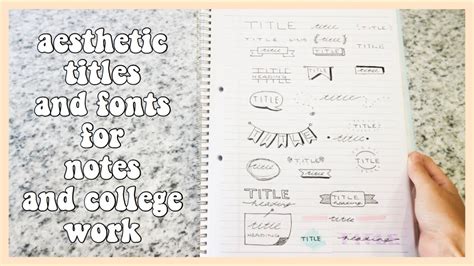 aesthetic
titles
and fonts
for
notes
and college
work
TITLE title {TITLE}
TITLE title TITLE
TITLE title TITLE
TITLE
HEADING
TITLE title
TITLE title
TITLE
title TITLE
TITLE title TITLE
TITLE
heading
TITLE
title
title
HEADING
TITLE
heading
TITLE
heading